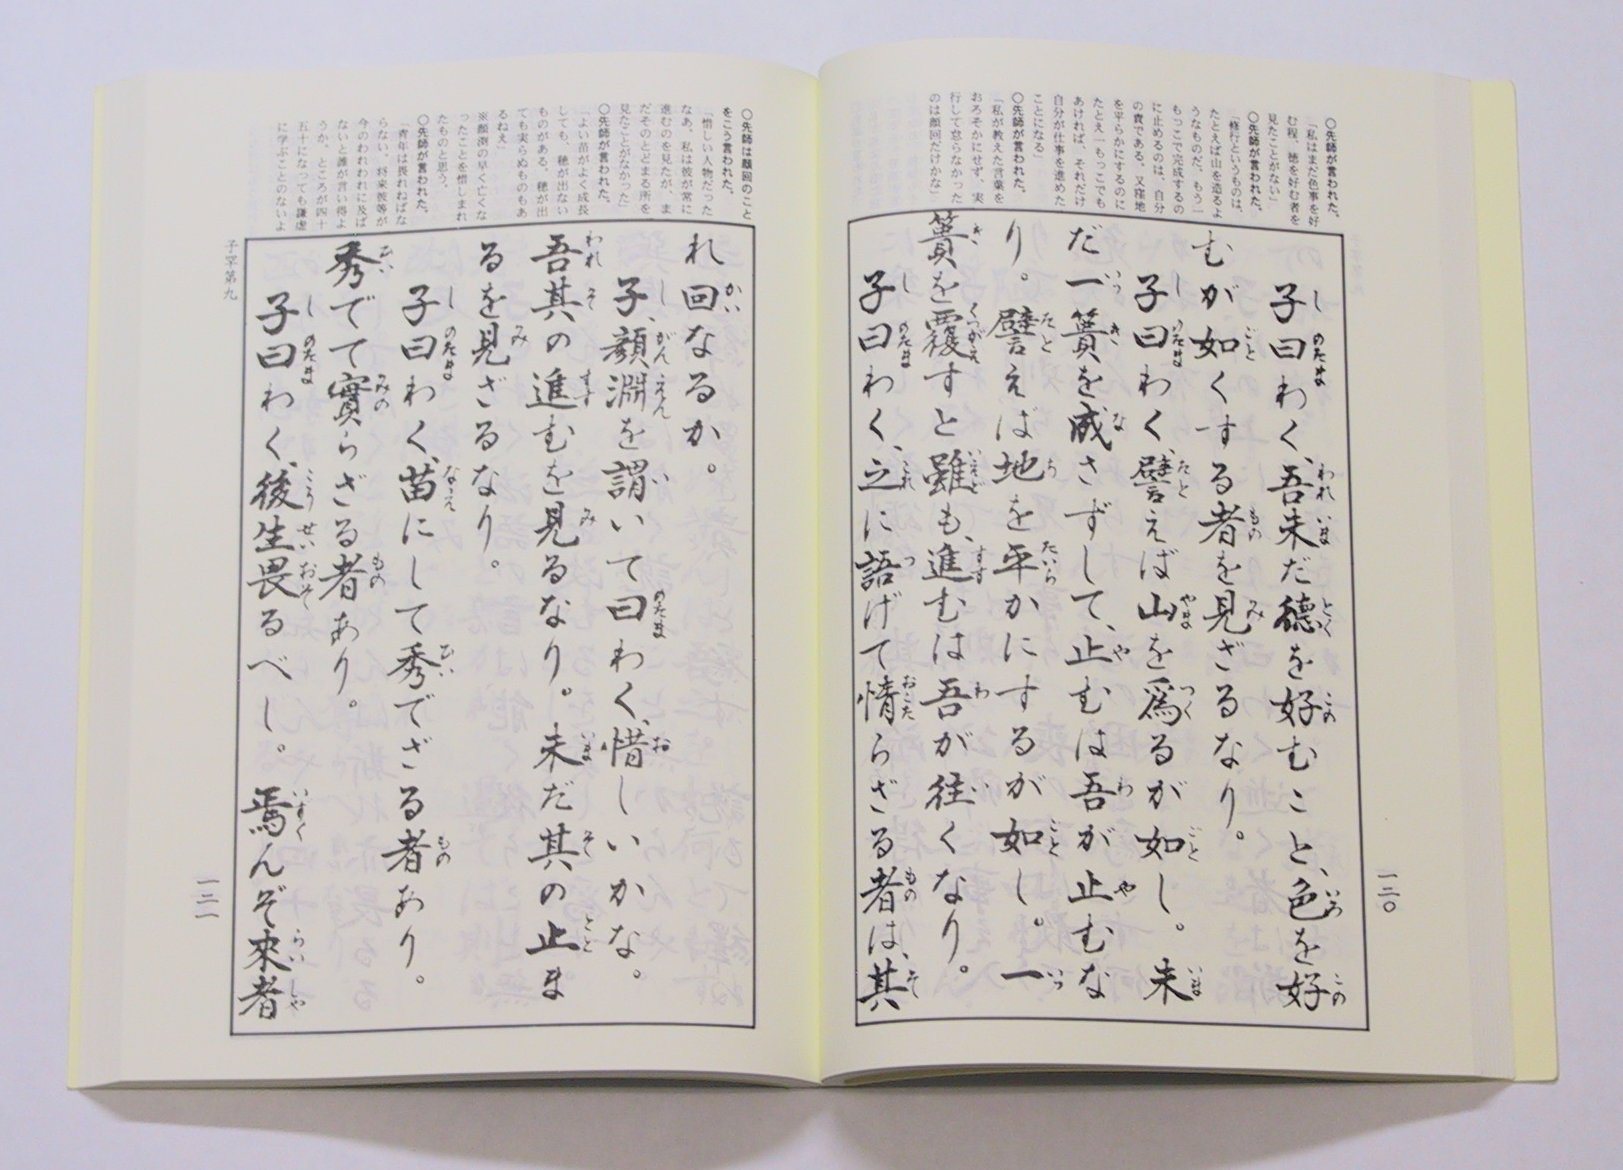 ○先師が言われた。
「私はまだ色事を好
む程、徳を好む者を
見たことがない」
○先師が言われた。
「修行というものは、
たとえば山を造るよ
うなものだ。もう一
もっこで完成するの
に止めるのは、自分
の責である。又窪地
を平らかにするのに
たとえ一もっこでも
あければ、それだけ
自分が仕事を進めた
ことになる」
○先師が言われた。
「私が教えた言葉を
おろそかにせず、実
行して怠らなかった
のは顔回だけかな」
子曰わく、吾未だ德を好むこと、色を好
むが如くする者を見ざるなり。
子曰わく、譬えば山を爲るが如し。未
だ一簣を成さずして、止むは吾が止むな
り。譬えば地を平かにするが如し。一
簣を覆すと雖も、進むは吾が往くなり。
子曰わく、之に語げて惰らざる者は、其
一三〇
○先師は顔回のこと
をこう言われた。
「惜しい人物だった
なあ。私は彼が常に
進むのを見たが、ま
だそのとどまる所を
見たことがなかった」
○先師が言われた。
「よい苗がよく成長
しても、穂が出ない
ものがある。穂が出
ても実らぬものもあ
るねえ」
※顔淵の早く亡くな
ったことを惜しまれ
たものと思う。
○先師が言われた。
「青年は畏れねばな
らない。将来彼等が
今のわれわれに及ば
ないと誰が言い得よ
うか。ところが四十
五十になっても謙虚
に学ぶことのないよ
れ回なるか。
子、顔淵を謂いて曰わく、惜しいかな。
吾其の進むを見るなり。未だ其の止ま
るを見ざるなり。
子曰わく、苗にして秀でざる者あり。
秀でて實らざる者あり。
子曰わく、後生畏るべし。焉んぞ來者
子罕第九
一三一